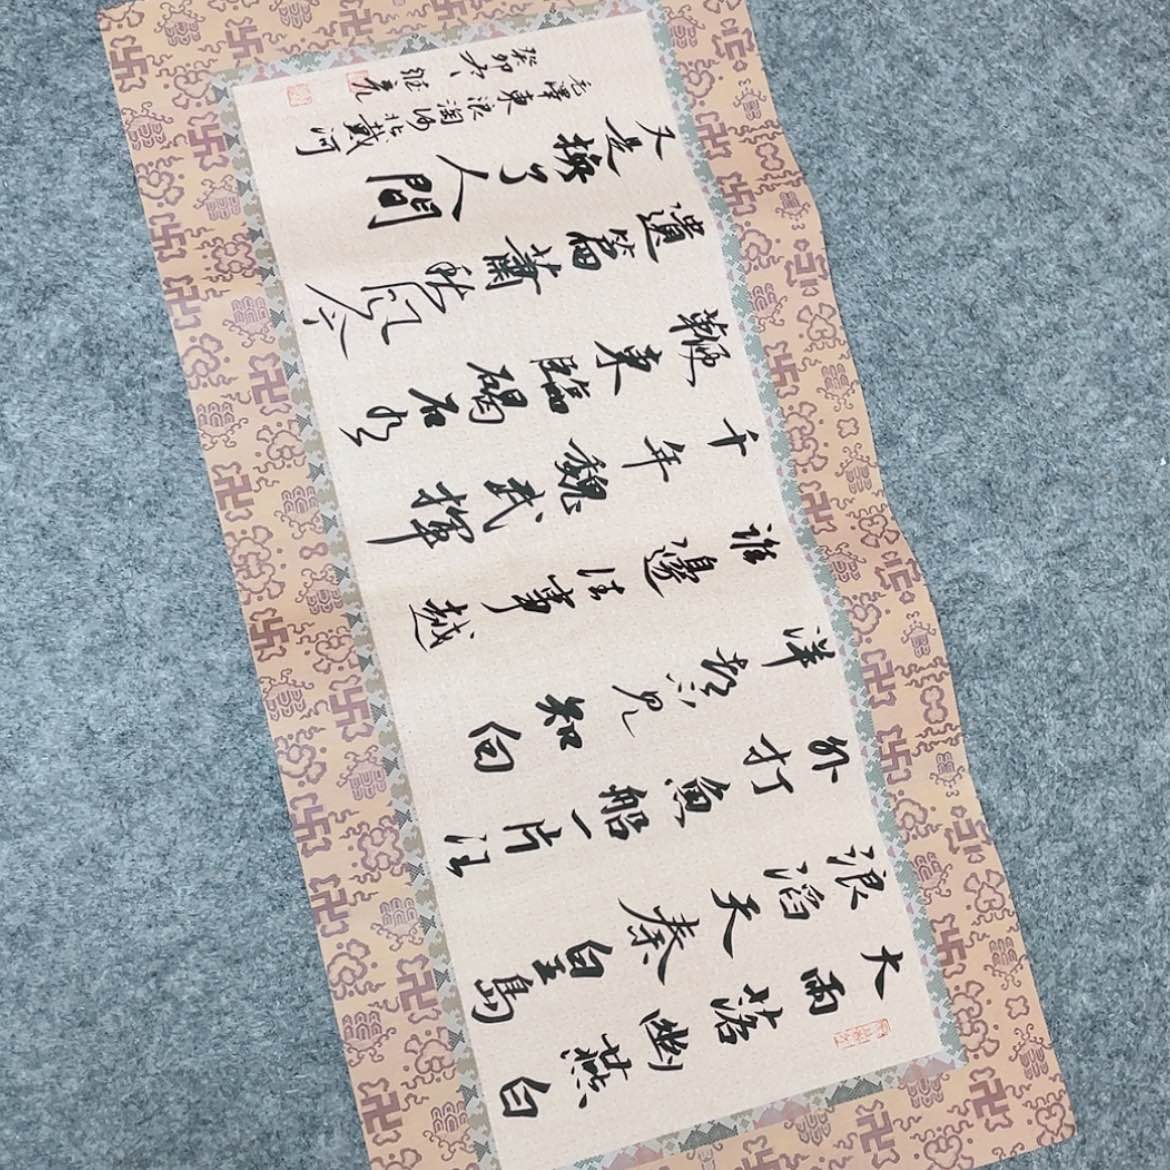 大雨落幽燕白
浪滔天秦皇島
外打魚船一片汪
洋都不見知向
誰邊往事越
千年魏武揮
鞭東臨碣石有
遺篇蕭秋風今
又是換了人間
毛澤東浪淘沙北戴河
癸卯